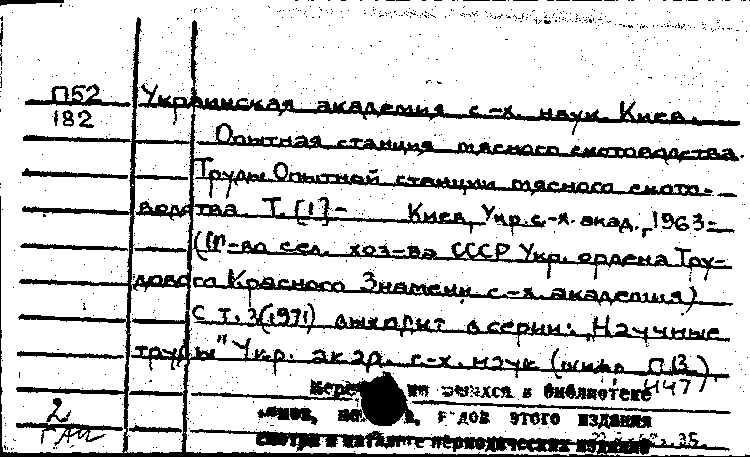 П52
182
Украинская академия с.-х. наук. Киев.
Опытная станция мясного скотоводства.
Труды Опытной станции мясного ското-
водства. Т. [1]- Киев, Укр. с.-х. акад., 1963-
(М-во сел. хоз-ва СССР Укр. ордена Тру-
дового Красного Знамени с.-х. академия)
С т. 3(1971) выходит в серии: „Научные
труды" Укр. акад. с.-х. наук (шифр П13.)
447
в библиотеке
этого издания
смотри в каталоге периодических изданий
2
35.